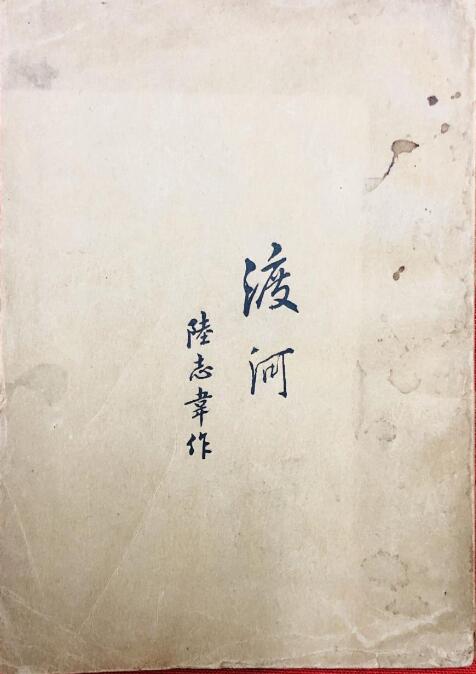 渡河
陸志韋作